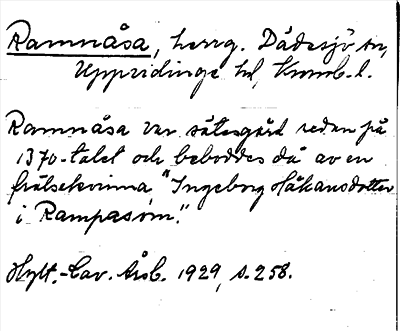 Ramnåsa, herrg. Dädesjö sn,
Uppvidinge hd, Kronob. l.
Ramnåsa var sätesgård redan på
1370-talet och beboddes då av en
frälsekvinna "Ingeborg Håkansdotter
i Rampasom".
Hylt.-Cav. Årsb. 1929, s. 258.